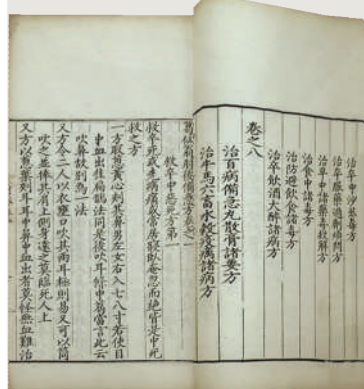 治卒中沙虱毒方
治卒服藥過劑煩悶方
治卒中諸藥毒救解方
治食中諸毒方
治防避飲食諸毒方
治卒飲酒大醉諸病方
卷之八
治百病備急丸散膏諸要方
治牛馬六畜水穀疫癘諸病方
葛仙翁肘後備急方卷之一
救卒中惡死方第一
救卒死或先病痛或常居寢臥奄忽而絕皆是中死
救之方
一方取葱黃心刺其鼻男左女右入七八寸若使目
中血出佳扁鵲法同是後吹耳條中葛嘗言此云
吹鼻故別為一法
又方令二人以衣壅口吹其兩耳極則易又可以筒
吹之並捧其肩上側身遠之莫臨死人上
又方以葱葉刺耳耳中鼻中血出者莫怪無血難治